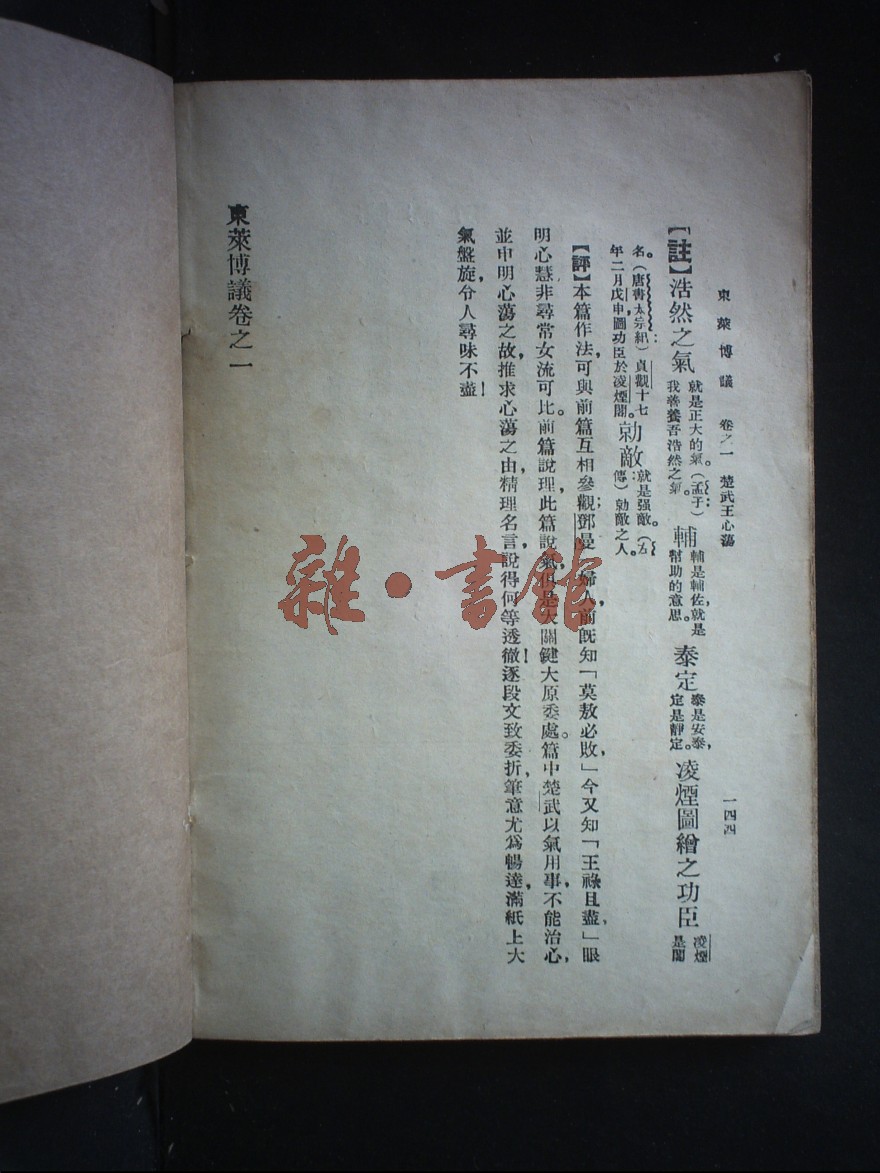 東萊博議 卷之一 楚武王心蕩 一四四
【註】浩然之氣 就是正大的氣。（孟子）：我善養吾浩然之氣。 輔 輔是輔佐，就是幫助的意思。 泰定 泰是安泰，定是靜定。 凌煙圖繪之功臣 凌煙是閣
名。（唐書太宗紀）：貞觀十七年二月戊申，圖功臣於凌煙閣。 勍敵 就是强敵。（左傳）：勍敵之人。
【評】本篇作法，可與前篇互相參觀；鄧曼一婦人，前旣知「莫敖必敗，」今又知「王祿且盡，」眼
明心慧，非尋常女流可比。前篇說理，此篇說氣，但是大關鍵大原委處。篇中楚武以氣用事，不能治心，
並申明心蕩之故，推求心蕩之由，精理名言，說得何等透徹！逐段文致委折，筆意尤爲暢達，滿紙上大
氣盤旋，令人尋味不盡！
東萊博議卷之一
雜·書館